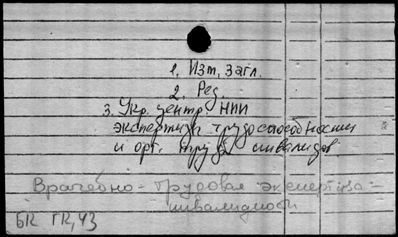 1. Изм. загл.
2. Ред.
3. Укр. центр НИИ
экспертизы трудоспособности
и орг. труда инвалидов.
Врачебно-трудовая экспертиза -
инвалидности
БК ГК, 43